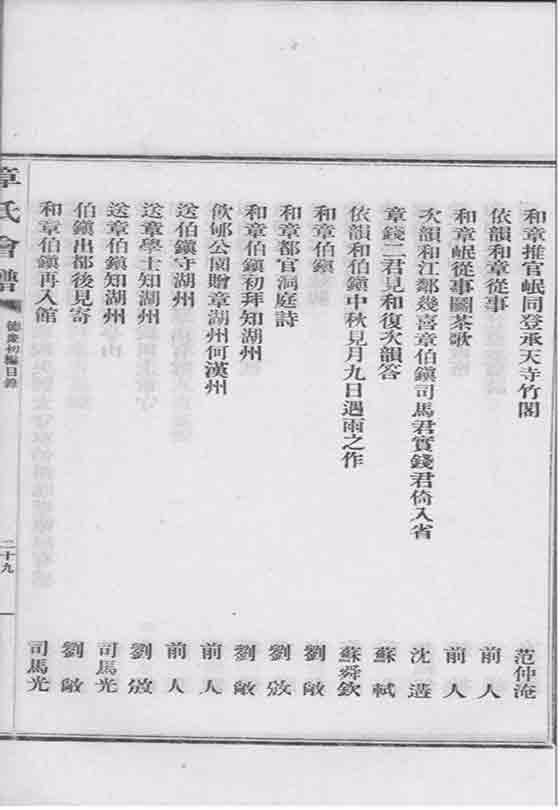 和章推官岷同登承天寺竹閣 范仲淹
依韻和章從事 前人
和章岷從事鬬茶歌 前人
次韻和江鄰幾喜章伯鎮司馬君實錢君倚入省 沈遘
章錢二君見和復次韻答 蘇軾
依韻和伯鎮中秋見月九日遇雨之作 蘇舜欽
和章伯鎮 劉敞
和章都官洞庭詩 劉攽
和章伯鎮初拜知湖州 劉敞
飲郇公園贈章湖州何漢州 前人
送伯鎮守湖州 前人
送章學士知湖州 劉攽
送章伯鎮知湖州 司馬光
伯鎮出都後見寄 劉敞
和章伯鎮再入館 司馬光
章氏會譜 德慶初編目錄 二十九